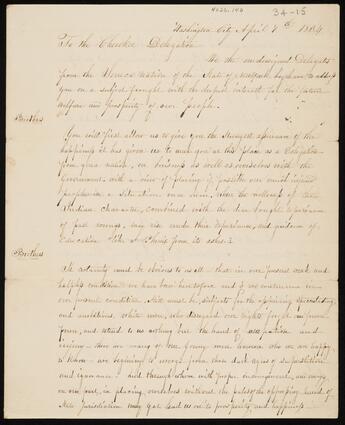 4026.143
34-15
Washington City April 7th 1834
To the Cherokee Delegation
We the undersigned Delegates
from the Seneca nation of the State of New York beg leave to address
you on a subject fraught with the deepest interest for the future
welfare and prosperity of our people.
Brothers
You will first allow us to give you the strongest assurance of the
happiness it has given us to meet you at this place as a Delegation
from your nation, on business as well as ourselves with the
Government with a view of placing if possible our much injured
people in a situation, once more, where the nature of the
Indian character, combined with the dear bought experience
of past wrongs, may rise under the and guidance of
Education like a Phenix from its ashes.
Brothers
It certainly must be obvious to us all that in our present weak and
helpless condition we have been heretofore and if we continue in
our present condition still must be, subjects for the speculating
and ambitious, white men, who disregard our rights forget our
form, and extend to us nothing but the hand of oppression and
misery. there are many of our young men however who we are happy
to know are beginning to emerge from that dark age of superstition
and ignorance and through whom with proper encouragement, and energy
on our part, in placing ourselves without the pale of the oppressing hand of
State jurisdiction may yet lead us on to prosperity and happiness.